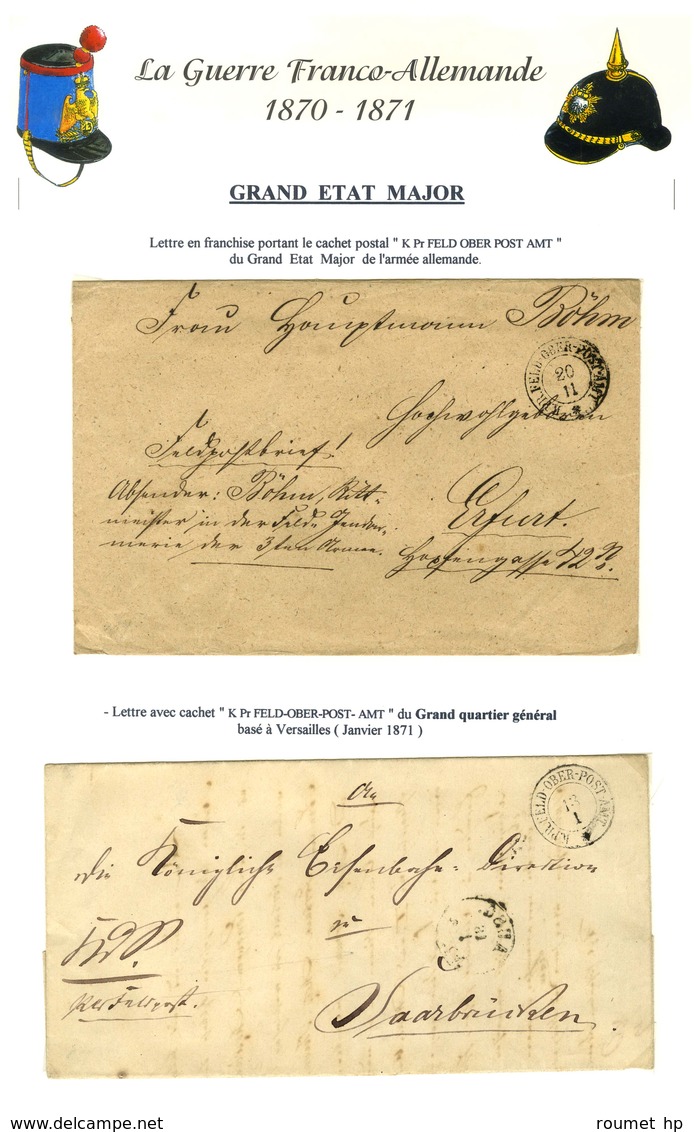 La Guerre Franco-Allemande
1870 - 1871
GRAND ETAT MAJOR
Lettre en franchise portant le cachet postal " K Pr FELD OBER POST AMT "
du Grand Etat Major de l'armée allemande.
Frau Hauptmann Böhm
K.PR.FELD-OBER-POST-AMT
20
11
Hochwohlgeboren
Feldpostbrief!
Absender: Böhm, Ritt-
meister in der Feld- Gendar-
merie der 3ten Armee.
Erfurt.
Hopfengasse
- Lettre avec cachet " K Pr FELD-OBER-POST- AMT " du Grand quartier général
basé à Versailles ( Janvier 1871 )
K.PR.FELD-OBER-POST-AMT
13
1
An
die Königliche Eisenbahn-Direktion
zu
Per Feldpost.
Saarbrücken
www.delcampe.net
roumet hp